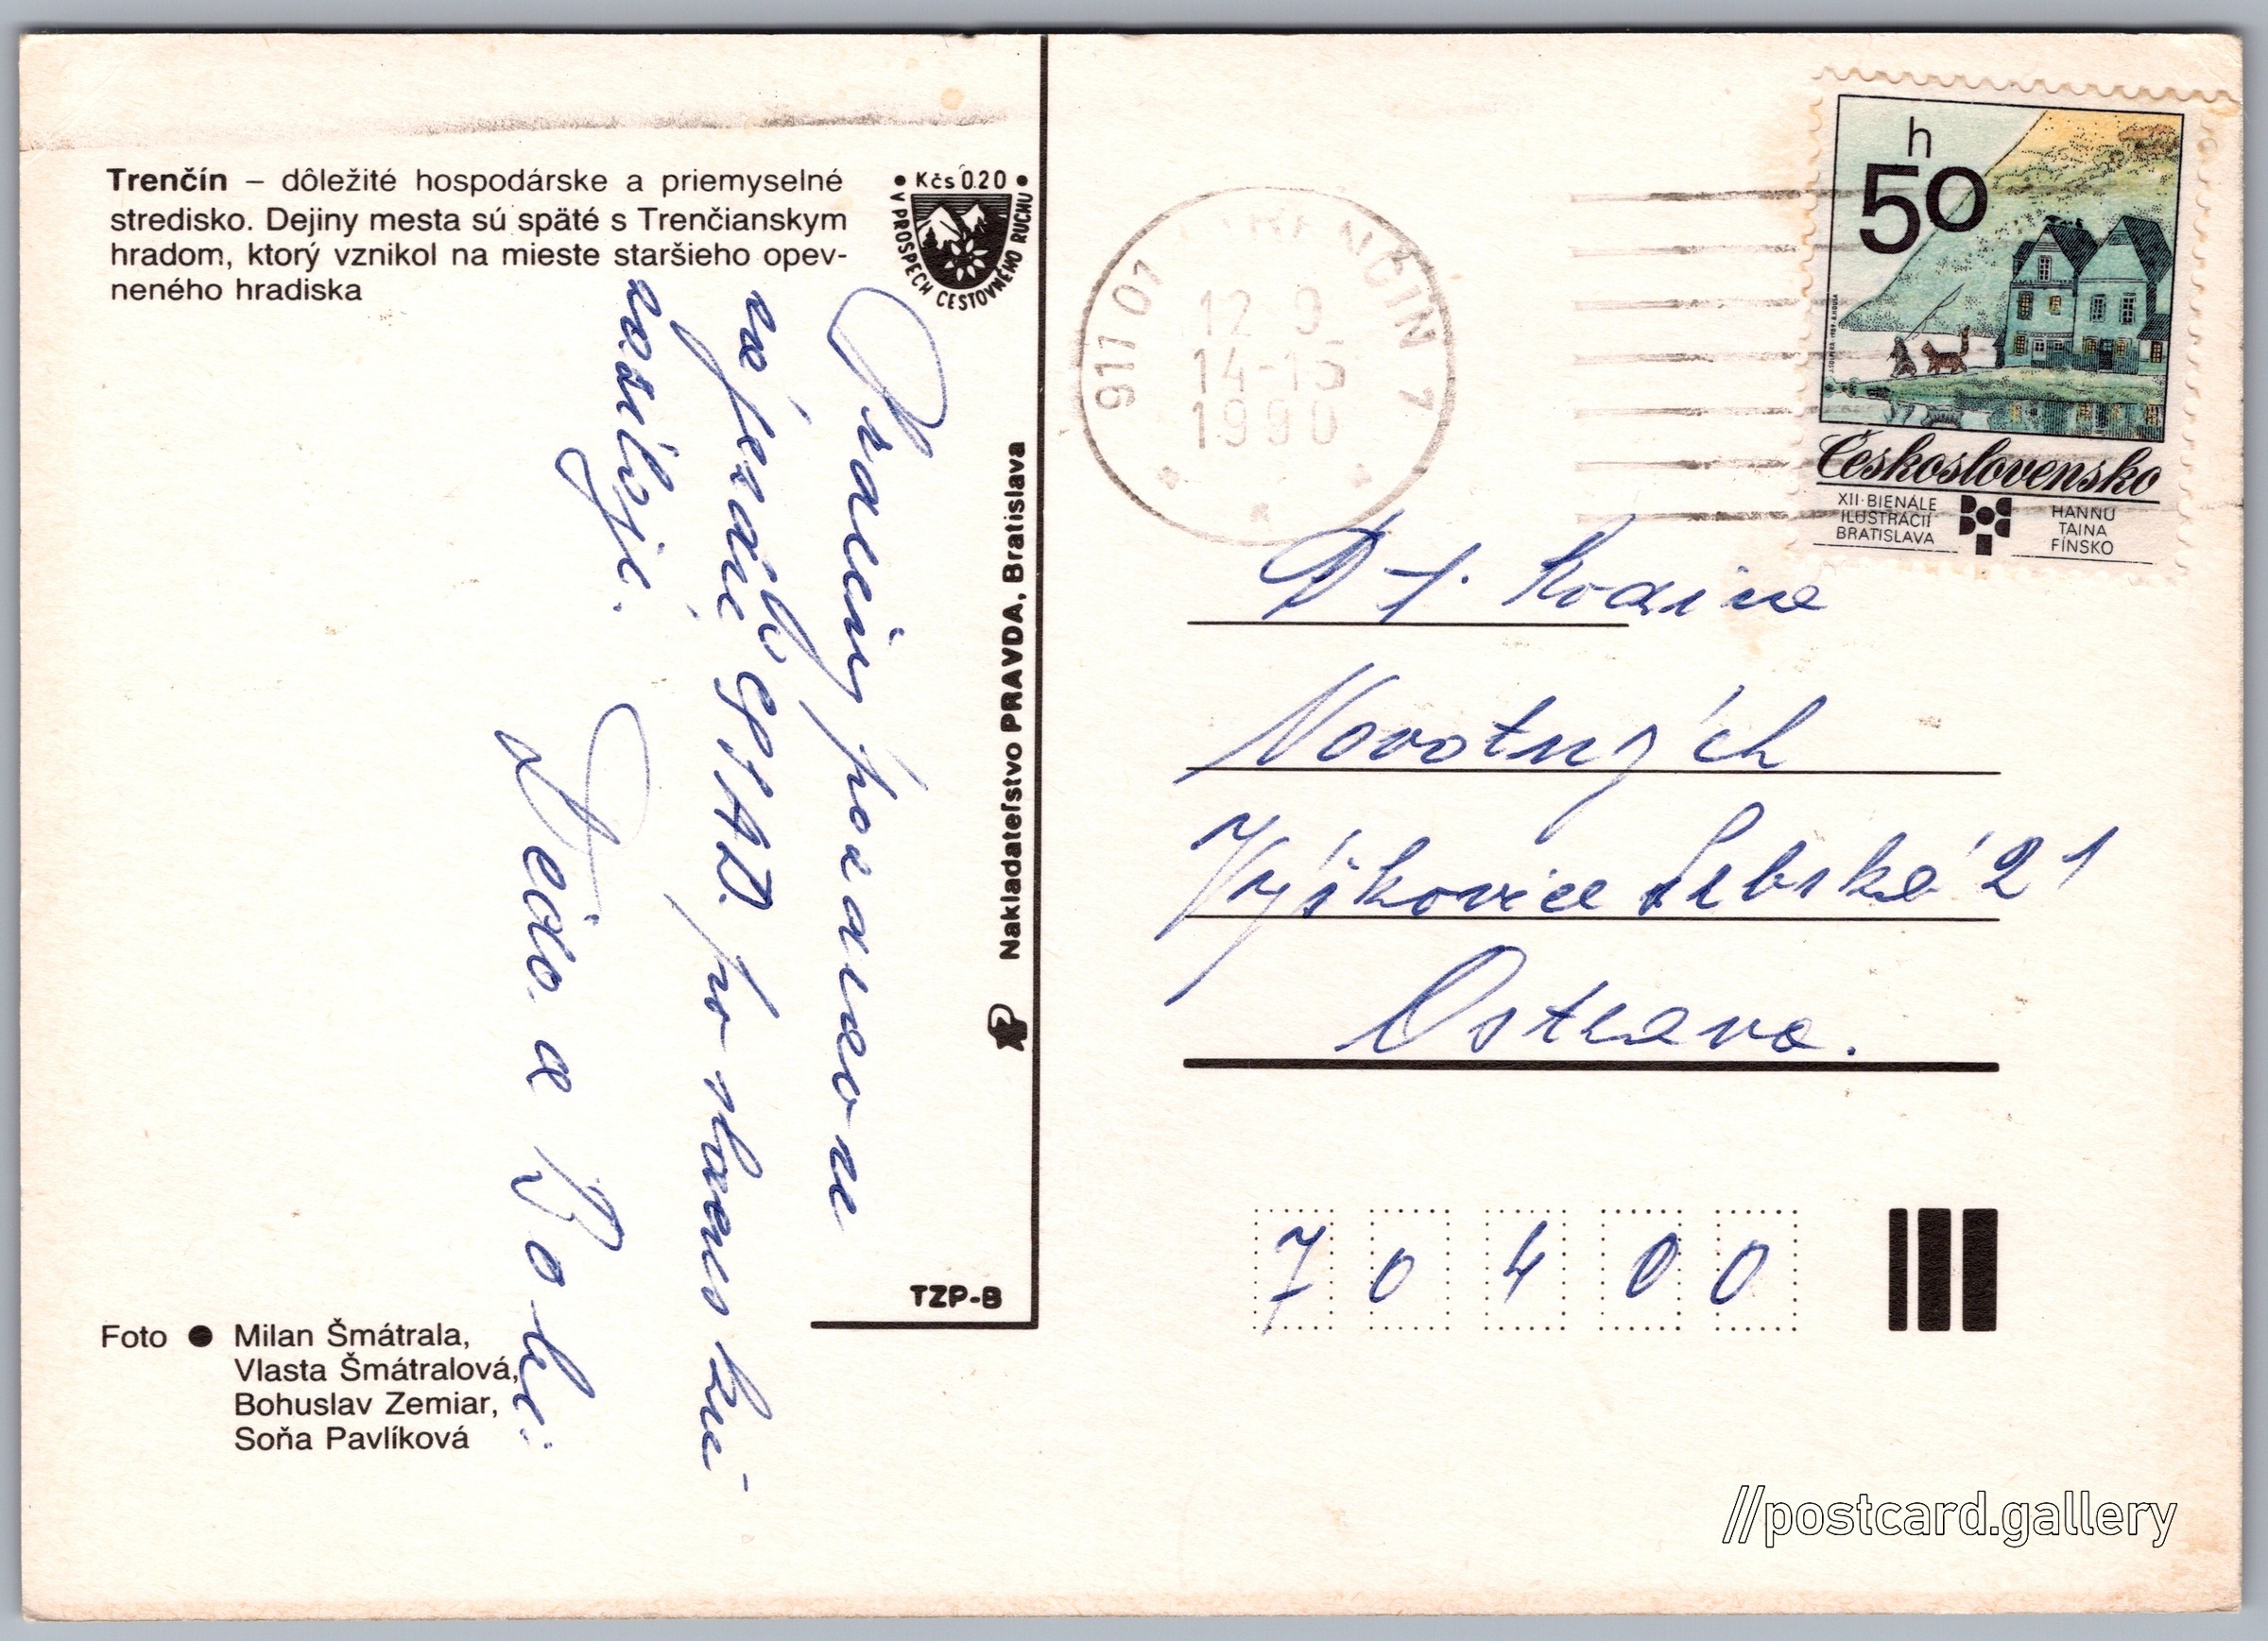 Trenčín – dôležité hospodárske a priemyselné
stredisko. Dejiny mesta sú späté s Trenčianskym
hradom, ktorý vznikol na mieste staršieho opev-
neného hradiska
• Kčs 0.20 •
V PROSPECH CESTOVNÉHO RUCHU
Nakladateľstvo PRAVDA, Bratislava
pozdravom
po slovensku
zasílají.
Děda a Boli
TZP-8
Foto ● Milan Šmátrala,
Vlasta Šmátralová,
Bohuslav Zemiar,
Soňa Pavlíková
917 01 TRENČÍN 7
12. 9.
14-15
1990
h
50
Československo
XII. BIENÁLE
ILUSTRÁCIÍ
BRATISLAVA
HANNU
TAINA
FÍNSKO
Rodina
Novotných
Výškovice Srbská 21
Ostrava.
7 0 4 0 0
//postcard.gallery